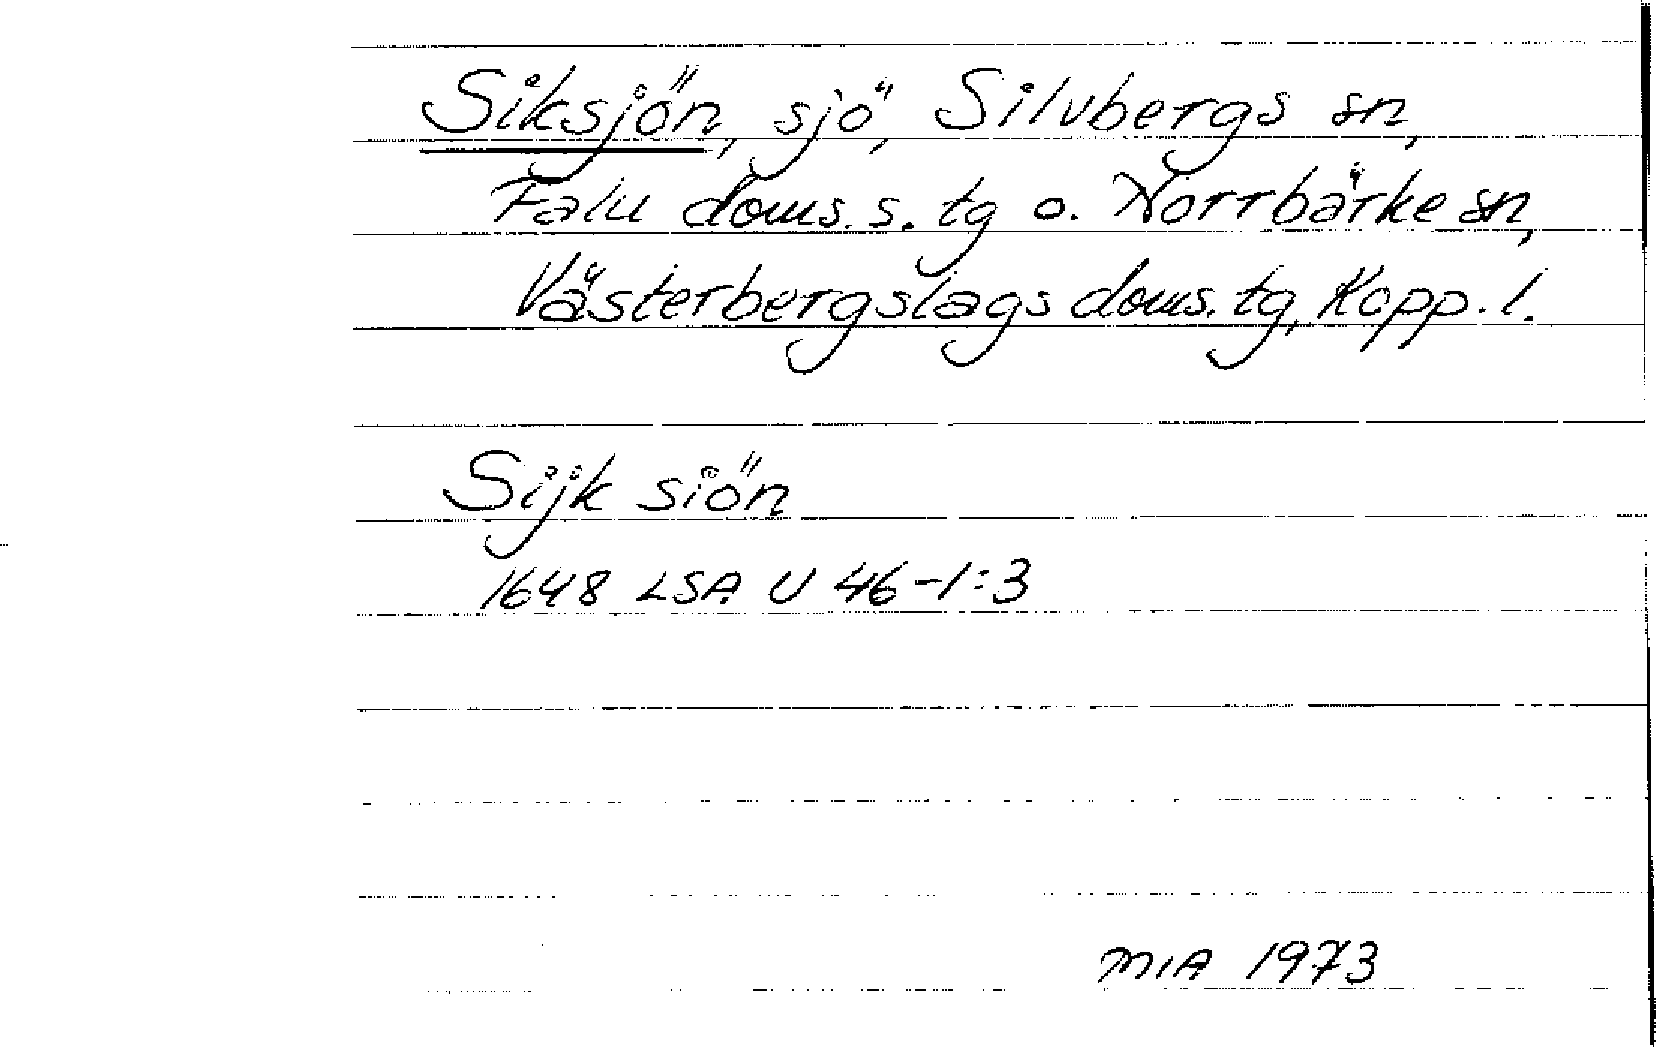 Siksjön, sjö, Silvbergs sn,
Falu doms. s. tg o. Norrbärke sn,
Västerbergslags doms. tg, Kopp. l.
Sijk siön
1648 LSA U 46-1:3
MIA 1973